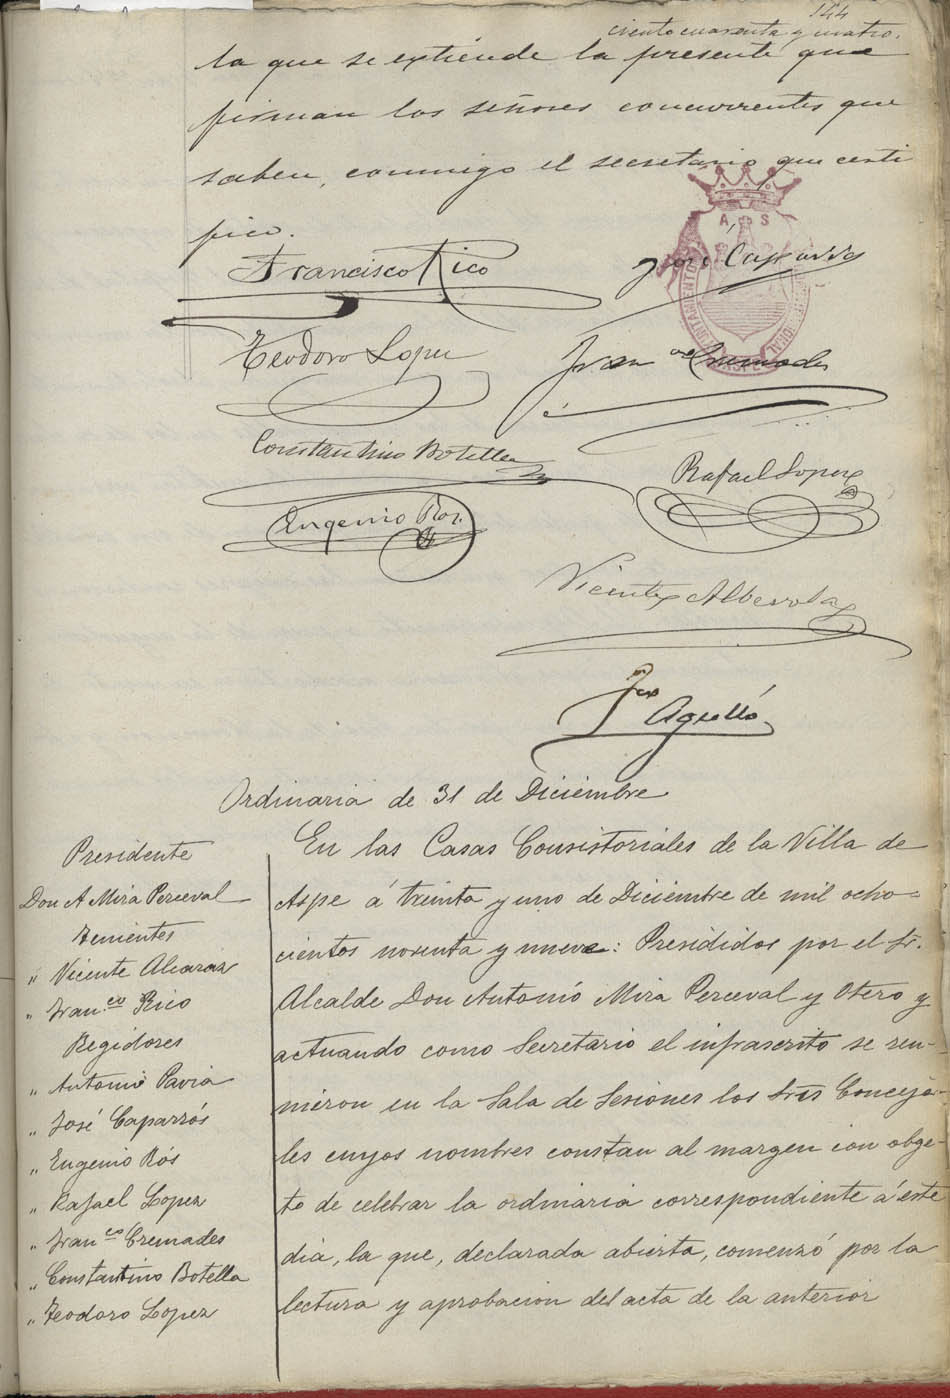 144
ciento cuarenta y cuatro.
la que se extiende la presente que
firman los señores concurrentes que
saben, conmigo el secretario que certi
fico.
Francisco Rico
José Caparrós
A S
AYUNTAMIENTO
ASPE
Teodoro Lopez
Fran.co Cremades
Constantino Botella
Rafael Lopez
Eugenio Ros.
Vicente Alberola
Fco Agulló
Ordinaria de 31 de Diciembre
Presidente
Don A Mira Perceval
Tenientes
" Vicente Alcaraz
" Fran.co Rico
Regidores
" Antonio Pavia
" José Caparrós
" Eugenio Rós
" Rafael Lopez
" Fran.co Cremades
" Constantino Botella
" Teodoro Lopez
En las Casas Consistoriales de la Villa de
Aspe á treinta y uno de Diciembre de mil ocho-
cientos noventa y nueve: Presididos por el Sr.
Alcalde Don Antonio Mira Perceval y Otero y
actuando como Secretario el infrascrito se reu-
nieron en la Sala de Sesiones los Sres Conceja-
les cuyos nombres constan al margen con obge-
to de celebrar la ordinaria correspondiente á este
dia, la que, declarada abierta, comenzó por la
lectura y aprobacion del acta de la anterior